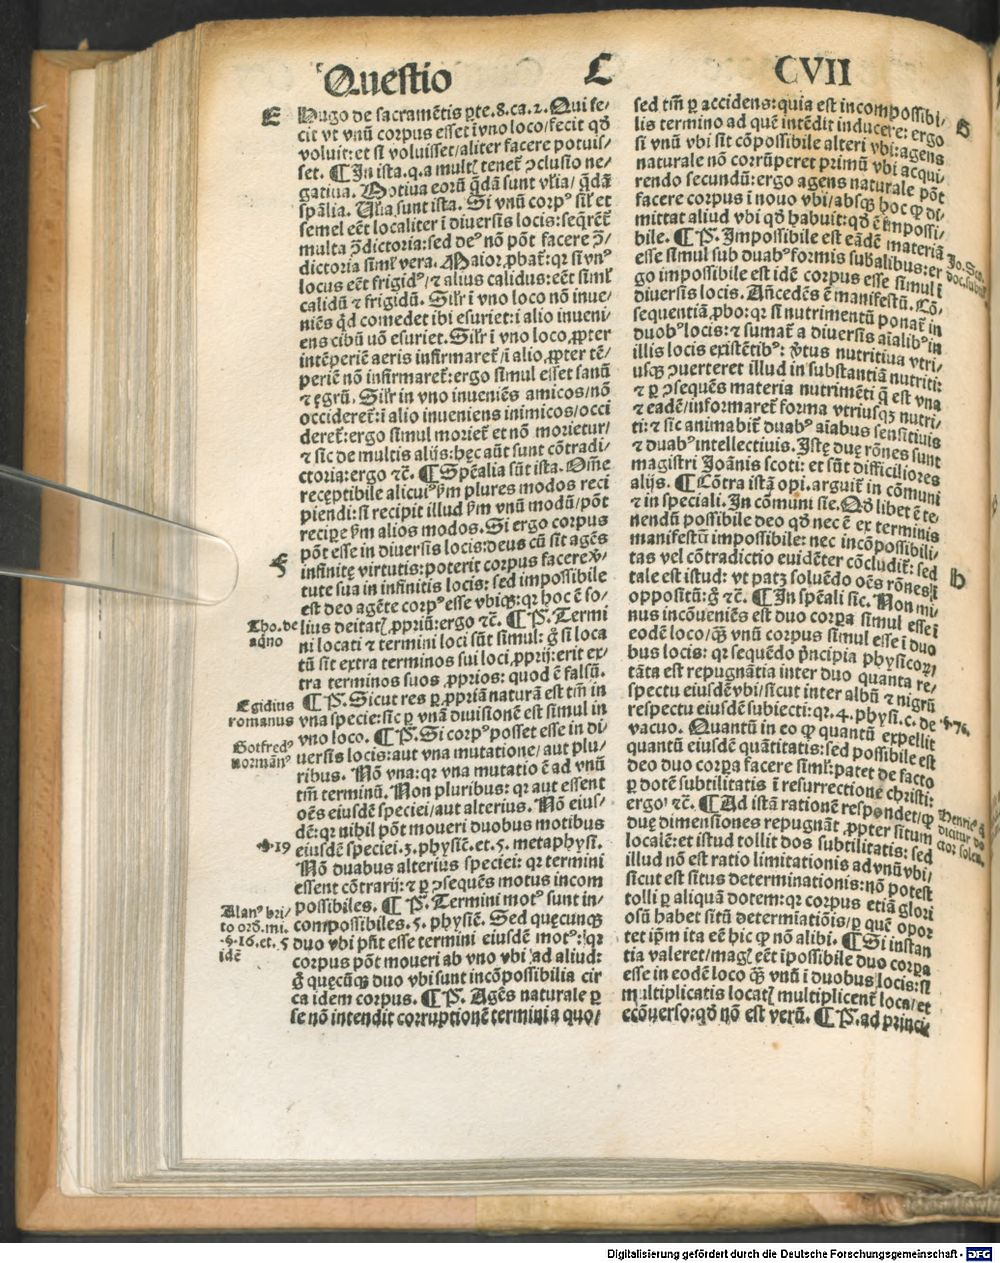 Questio
L
CVII
E
Hugo de sacramẽtis ꝑte.8.ca.2.Qui fe/
cit vt vnũ corpus esset ĩ vno loco/fecit qđ
voluit:et si voluisset/aliter facere potuis/
set. ¶ In ista.q.a multꝭ tenet᷑ ꝯclusio ne/
gatiua. Motiua eorũ q̃dã sunt vl̃ia/ q̃dã
spãlia. Vl̃ia sunt ista. Si vnũ corpꝰ sil̃ et
semel eẽt localiter ĩ diuersis locis:seq̃ret᷑
multa ꝯ̃dictoria:sed deꝰ nõ põt facere ꝯ̃/
dictoria siml̃ vera. Maior ꝓbat᷑:qꝛ si vnꝰ
locus eẽt frigidꝰ/⁊ alius calidus:eẽt siml̃
calidũ ⁊ frigidũ. Sil̃r ĩ vno loco nõ inue/
niẽs qđ comedet ibi esuriet:ĩ alio inueni/
ens cibũ nõ esuriet. Sil̃r ĩ vno loco,ꝓpter
intẽperiẽ aeris infirmaret᷑/ĩ alio,ꝓpter tẽ/
periẽ nõ infirmaret᷑:ergo simul esset sanũ
⁊ ęgrũ. Sil̃r in vno inueniẽs amicos/nõ
occideret᷑:ĩ alio inueniens inimicos/occi
deret᷑:ergo simul moriet᷑ et nõ morietur/
⁊ sic de multis alijs:hęc aũt sunt cõtradi/
ctoria:ergo ⁊c̃. ¶ Spẽalia sũt ista. Om̃e
recęptibile alicuiꝰ ẜm plures modos reci
piendi:si recipit illud ẜm vnũ modũ/põt
recipe ẜm alios modos. Si ergo corpus
põt esse in diuersis locis:deus cũ sit agẽs
infinitę virtutis:poterit corpus facere ṽ/
tute sua in infinitis locis: sed impossibile
est deo agẽte corpꝰ esse vbiqꝫ:qꝛ hoc ẽ so/
lius deitatꝭ ꝓpriũ:ergo ⁊c̃. ¶ P̃. Termi
ni locati ⁊ termini loci sũt simul: g̃ si loca
tũ sit extra terminos sui loci,ꝓprij:erit ex/
tra terminos suos ꝓprios: quod ẽ falsũ.
¶ P̃. Sicut res ꝑ ꝓpriã naturã est tm̃ in
vna specie:sic ꝑ vnã diuisionẽ est simul in
vno loco. ¶ P̃. Si corpꝰ posset esse in di/
uersis locis:aut vna mutatione/ aut plu/
ribus. Nõ vna:qꝛ vna mutatio ẽ ad vnũ
tm̃ terminũ. Non pluribus: qꝛ aut essent
oẽs eiusdẽ speciei/aut alterius. Nõ eius/
dẽ:qꝛ nihil põt moueri duobus motibus
eiusdẽ speciei.3.physiẽ.et.5. metaphysi.
Nõ duabus alterius speciei: qꝛ termini
essent cõtrarij:⁊ ꝑ ꝯsequẽs motus incom
possibiles. ¶ P̃. Termini motꝰ sunt in/
compossibiles.5. physiẽ. Sed quęcunqꝫ
duo vbi pñt esse termini eiusdẽ motꝰ: qꝛ
corpus põt moueri ab vno vbi ad aliud:
g̃ quęcũqꝫ duo vbi sunt incõpossibilia cir
ca idem corpus. ¶ P̃. Agẽs naturale ꝑ
se nõ intendit corruptionẽ termini a quo/
F
Tho. de
aqno
Egidius
romanus
Gotfredꝰ
normãnꝰ
.ꝙ.19
Alanꝰ bri/
to orđ.mi.
.ꝙ.16.et.5
idẽ
sed tm̃ ꝑ accidens:quia est incompossibi/
lis termino ad quẽ intẽdit inducere: ergo
si vnũ vbi sit cõpossibile alteri vbi:agens
naturale nõ corrũperet primũ vbi acqui/
rendo secundũ:ergo agens naturale põt
facere corpus ĩ nouo vbi/absqꝫ hoc ꝙ di/
mittat aliud vbi qđ habuit:qđ ẽ impossi/
bile. ¶ P̃. Impossibile est eãdẽ materiã
esse simul sub duabꝰ formis sub̃alibus:er
go impossibile est idẽ corpus esse simul ĩ
diuersis locis. Añcedẽs ẽ manifestũ. Cõ/
sequentiã,ꝓbo: qꝛ si nutrimentũ ponat᷑ in
duobꝰ locis:⁊ sumat᷑ a diuersis aĩalibꝰ in
illis locis existẽtibꝰ: ṽtus nutritiua vtri/
usqꝫ ꝯuerteret illud in substantiã nutriti:
⁊ ꝑ ꝯsequẽs materia nutrimẽti q̃ est vna
⁊ eadẽ/informaret᷑ forma vtriusqꝫ nutri/
ti: ⁊ sic animabit᷑ duabꝰ aĩabus sensitiuis
⁊ duabꝰ intellectiuis. Istę duę rõnes sunt
magistri Joãnis scoti: et sũt difficiliores
alijs. ¶ Cõtra istã opi. arguit᷑ in cõmuni
⁊ in speciali. In cõmuni sic. Qđ libet ẽ te/
nendũ possibile deo qđ nec ẽ ex terminis
manifestũ impossibile: nec incõpossibili/
tas vel cõtradictio euidẽter cõcludit᷑: sed
tale est istud: vt patꝫ soluẽdo oẽs rõnes ĩ
oppositũ: g̃ ⁊c̃. ¶ In spẽali sic. Non mi/
nus incõueniẽs est duo corpa simul esse ĩ
eodẽ loco/q̃ꝫ vnũ corpus simul esse ĩ duo
bus locis: qꝛ sequẽdo p̃ncipia physicoꝝ/
tãta est repugnãtia inter duo quanta re/
spectu eiusdẽ vbi/sicut inter albũ ⁊ nigrũ
respectu eiusdẽ subiecti: qꝛ. 4. physi. c. de
vacuo. Quantũ in eo ꝙ quantũ expellit
quantũ eiusdẽ quãtitatis: sed possibile est
deo duo corpa facere siml̃: patet de facto
ꝑ dotẽ subtilitatis ĩ resurrectione christi:
ergo ⁊c̃. ¶ Ad istã rationẽ respondet/ꝙ
duę dimensiones repugnãt ꝓpter situm
localẽ:et istud tollit dos subtilitatis: sed
illud nõ est ratio limitationis ad vnũ vbi/
sicut est situs determinationis:nõ potest
tolli ꝑ aliquã dotem:qꝛ corpus etiã glori
osũ habet sitũ determiatiõis/ꝑ quẽ opor
tet ip̃m ita eẽ hic ꝙ nõ alibi. ¶ Si instan
tia valeret/magꝭ eẽt ĩpossibile duo corpa
esse in eodẽ loco q̃ꝫ vnũ ĩ duobus locis:si
multiplicatis locatꝭ multiplicent᷑ loca/et
ecõuerso:qđ nõ est verũ. ¶ P̃. ad princi
G
Jo. Sco.
doc. subtil.
h
.ꝙ.76.
Henricꝰ ꝗ
dicitur do
ctor solen.
Digitalisierung gefördert durch die Deutsche Forschungsgemeinschaft - DFG